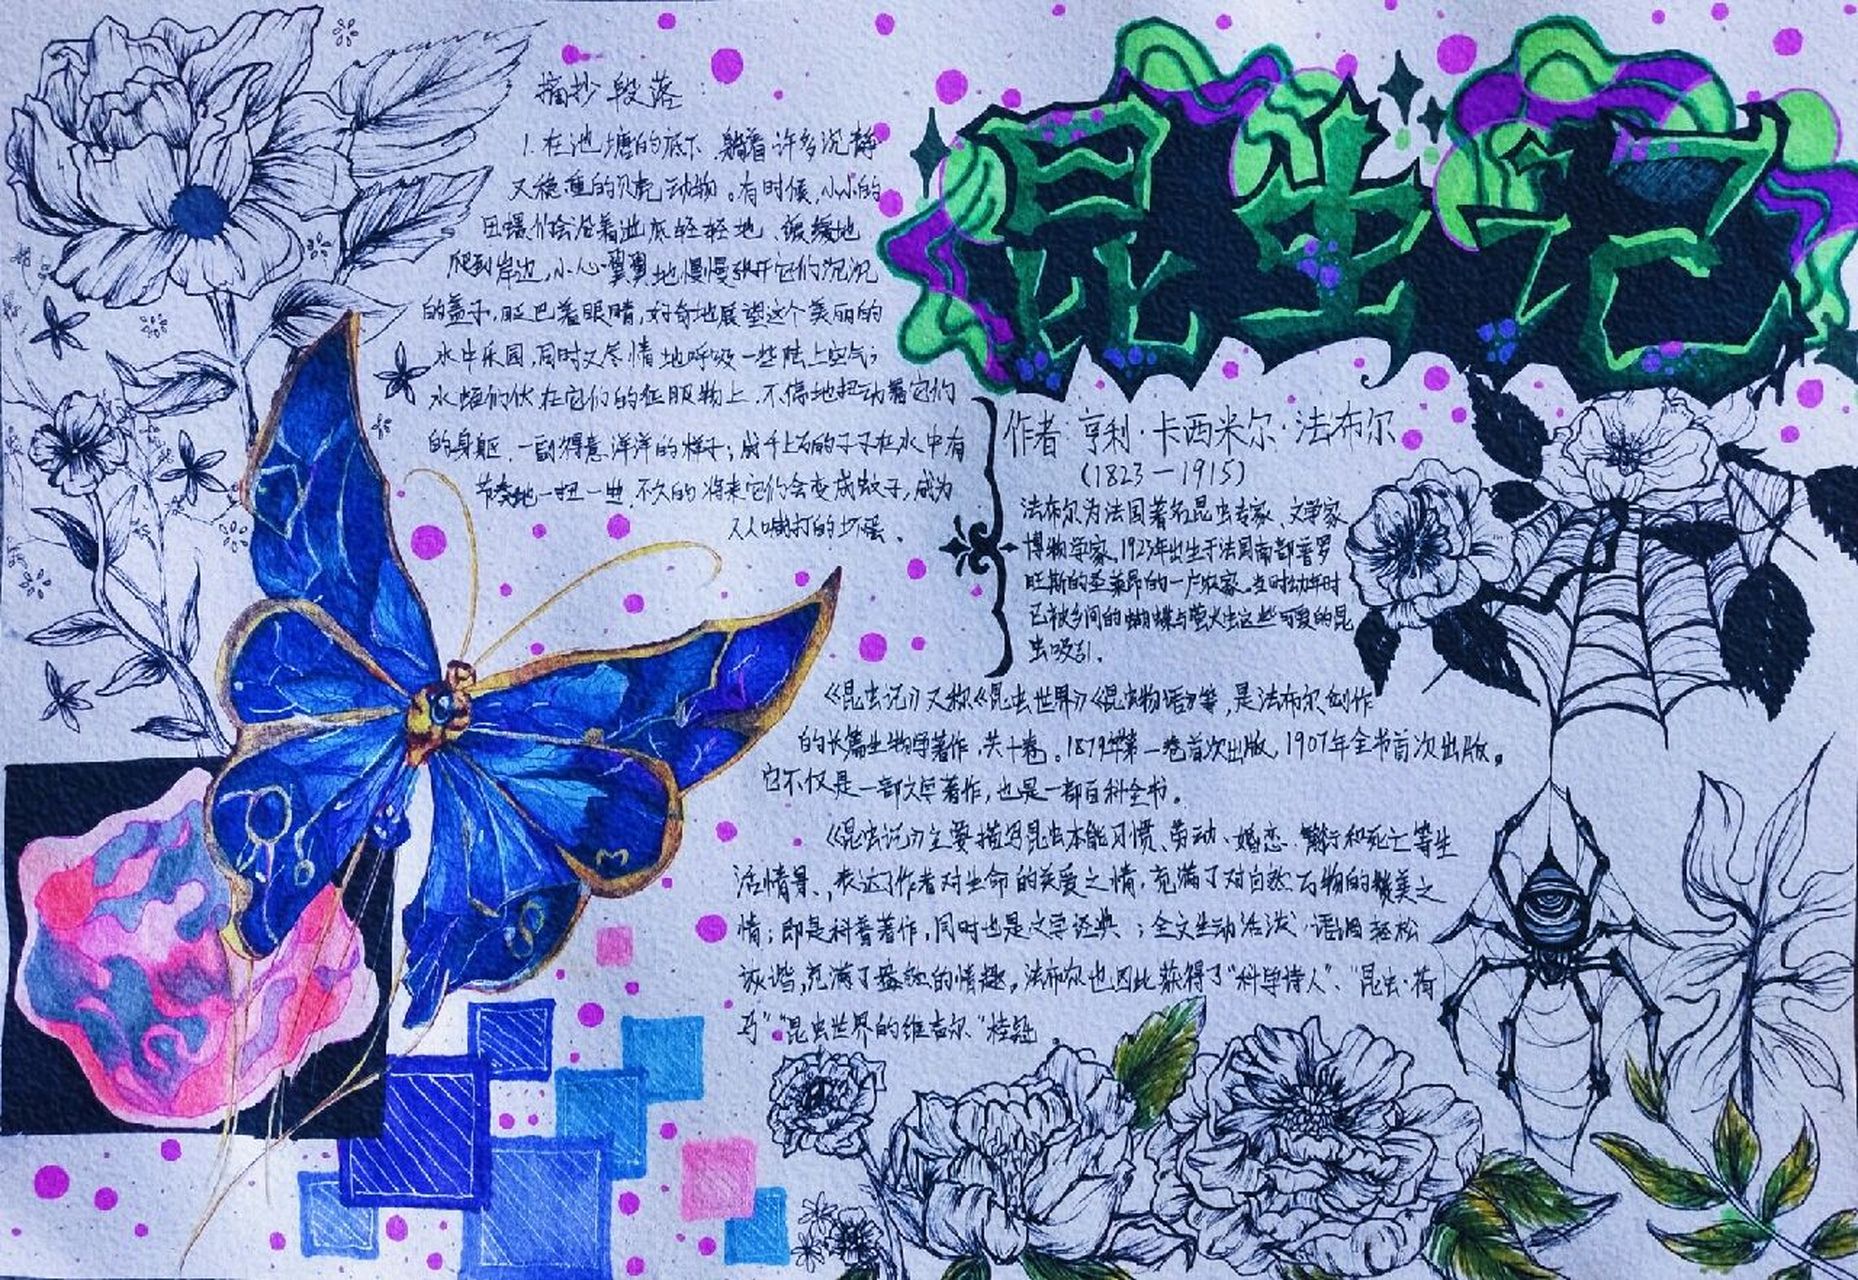 昆虫记
摘抄段落：
1.在池塘的底下，躺着许多沉静
又稳重的贝壳动物。有时候，小小的
田螺们会沿着池底轻轻地、缓缓地
爬到岸边，小心翼翼地慢慢张开它们沉沉
的盖子，眨巴着眼睛，好奇地展望这个美丽的
水中乐园，同时又尽情地呼吸一些陆上空气；
水蛭们伏在它们的征服物上，不停地扭动着它们
的身躯，一副得意洋洋的样子；成千上万的孑孓在水中有
节奏地一扭一曲，不久的将来它们会变成蚊子，成为
人人喊打的坏蛋。
作者：亨利·卡西米尔·法布尔
(1823—1915)
法布尔为法国著名昆虫专家、文学家
博物学家，1923年出生于法国南部普罗
旺斯的圣莱昂的一户农家。当时幼年时
已被乡间的蝴蝶与萤火虫这些可爱的昆
虫吸引。
《昆虫记》又称《昆虫世界》《昆虫物语》等，是法布尔创作
的长篇生物学著作，共十卷。1879年第一卷首次出版，1907年全书首次出版。
它不仅是一部文学著作，也是一部百科全书。
《昆虫记》主要描写昆虫本能习惯、劳动、婚恋、繁衍和死亡等生
活情景，表达了作者对生命的关爱之情，充满了对自然万物的赞美之
情；即是科普著作，同时也是文学经典；全文生动活泼，语调轻松
诙谐，充满了盎然的情趣，法布尔也因此获得了“科学诗人”、“昆虫·荷
马”“昆虫世界的维吉尔”桂冠。